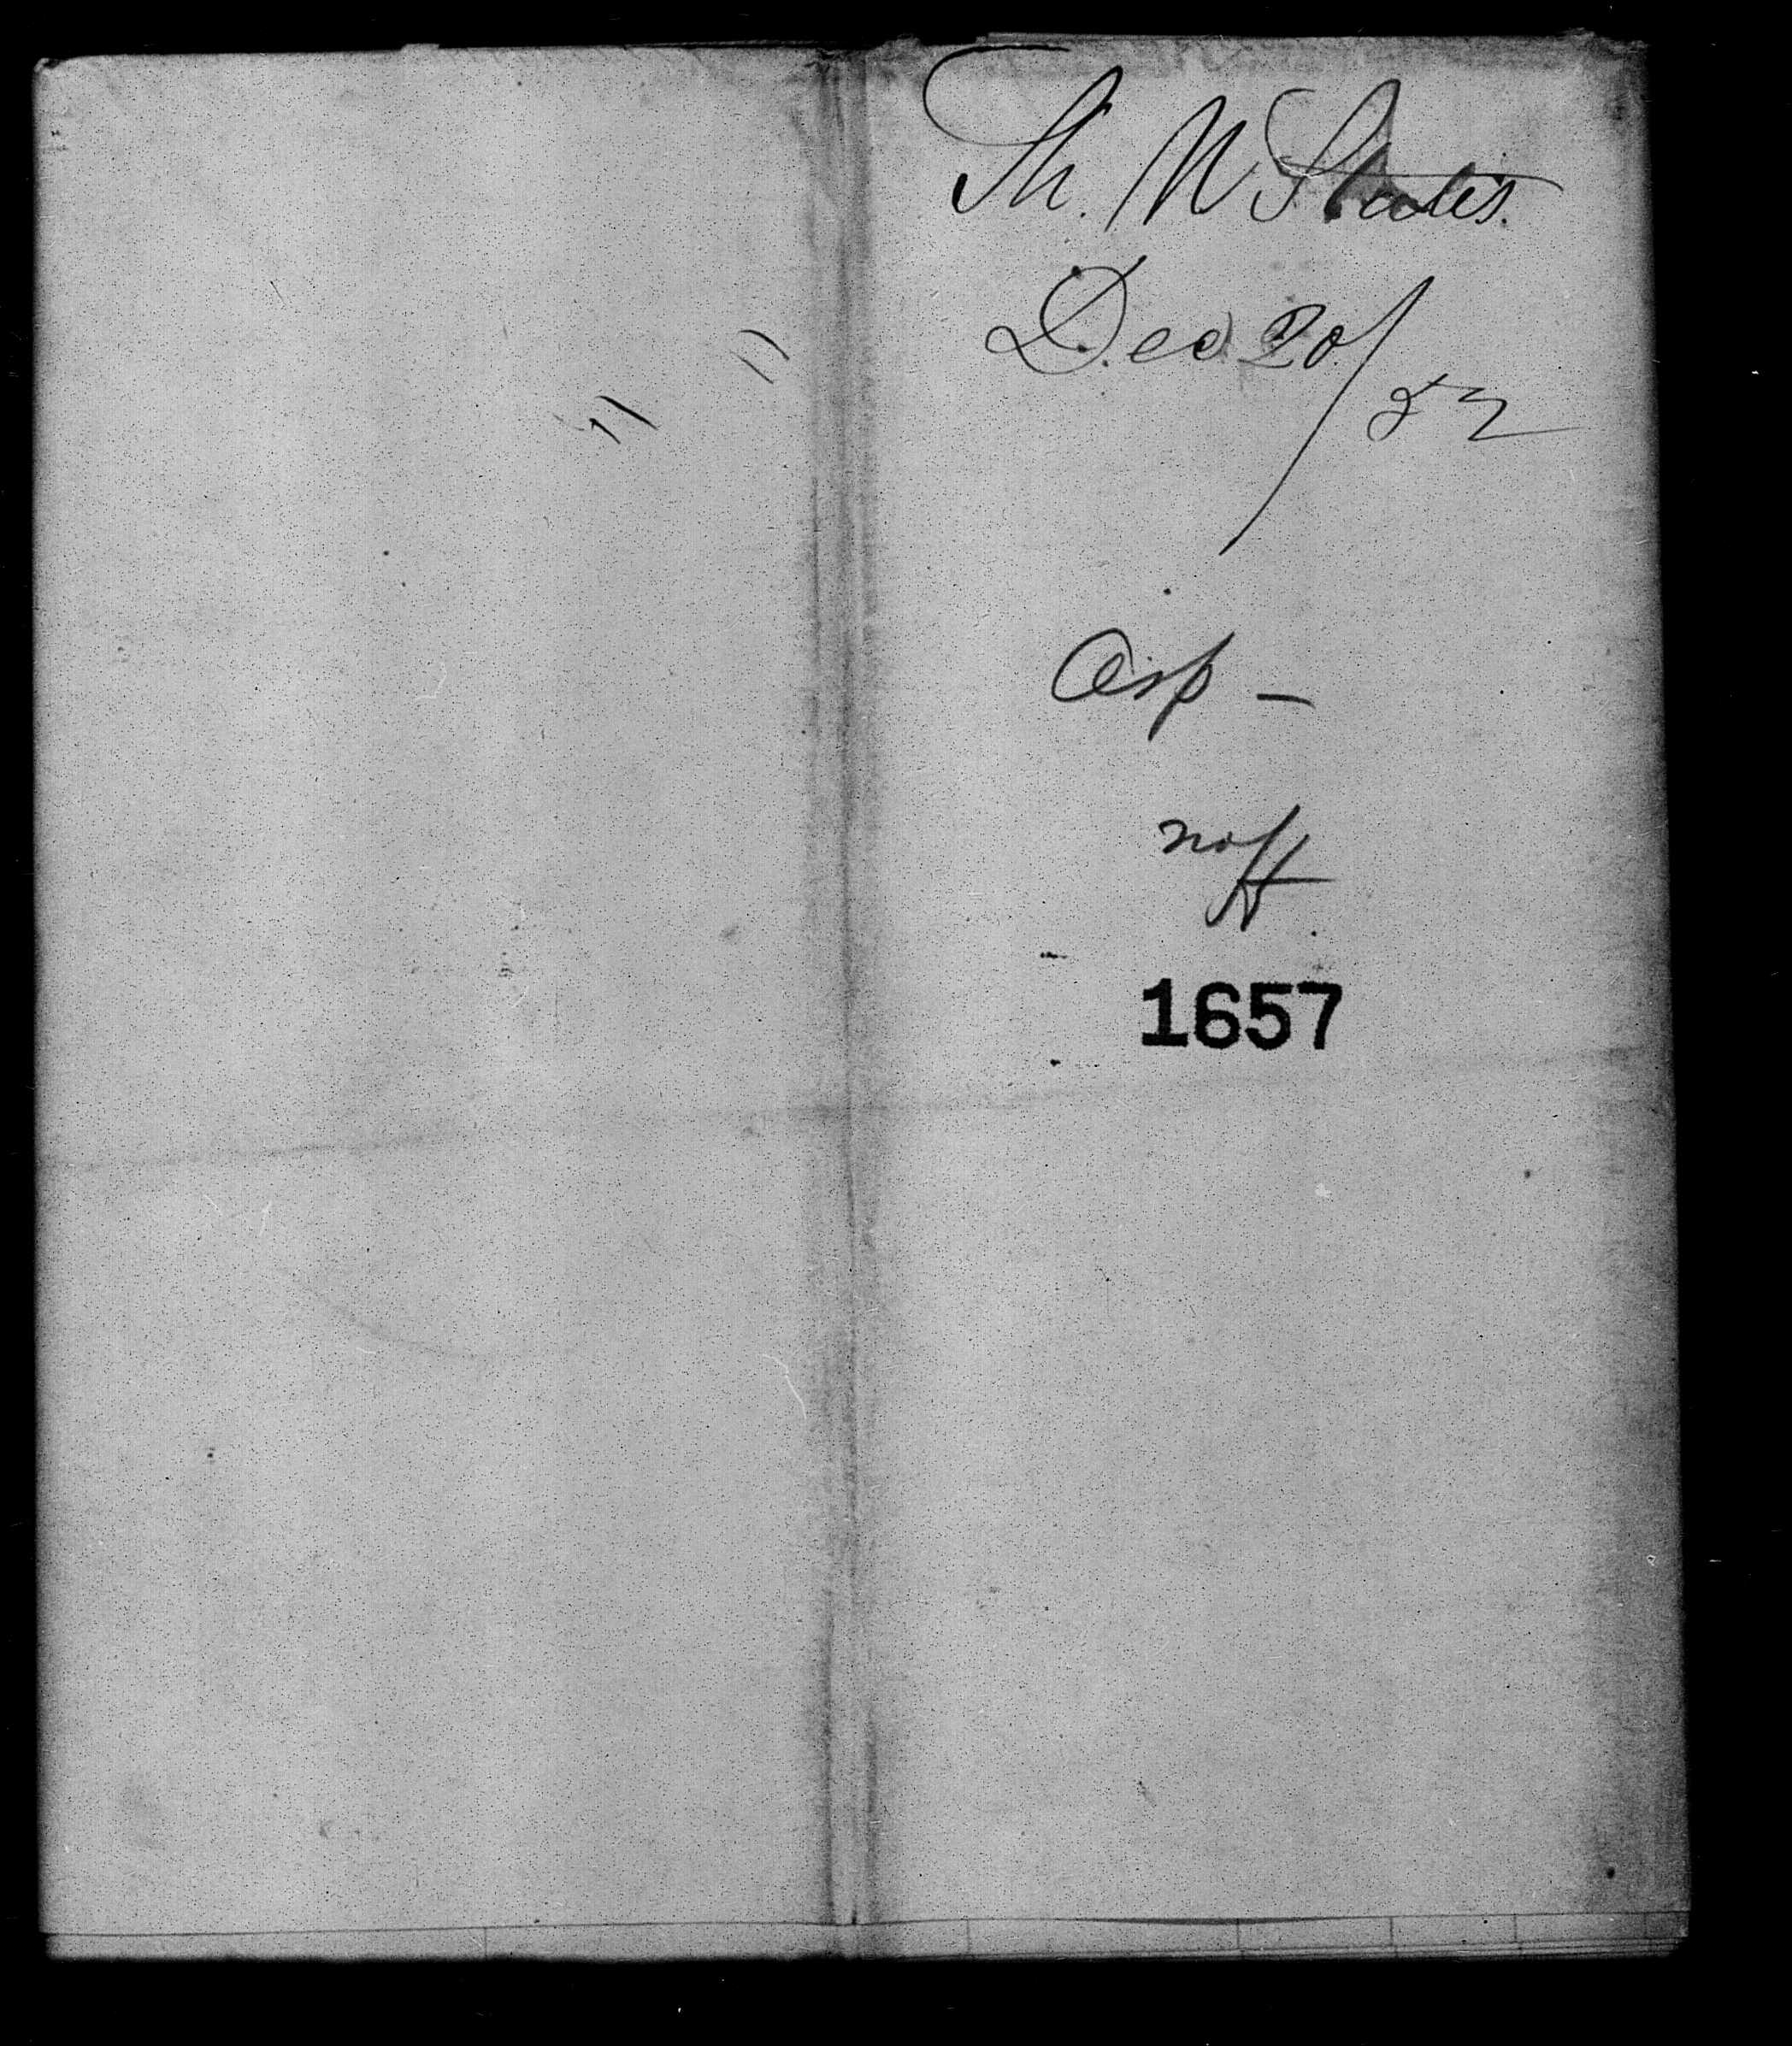 Th. W States.
Dec 20/52
Asp -
noff
1657